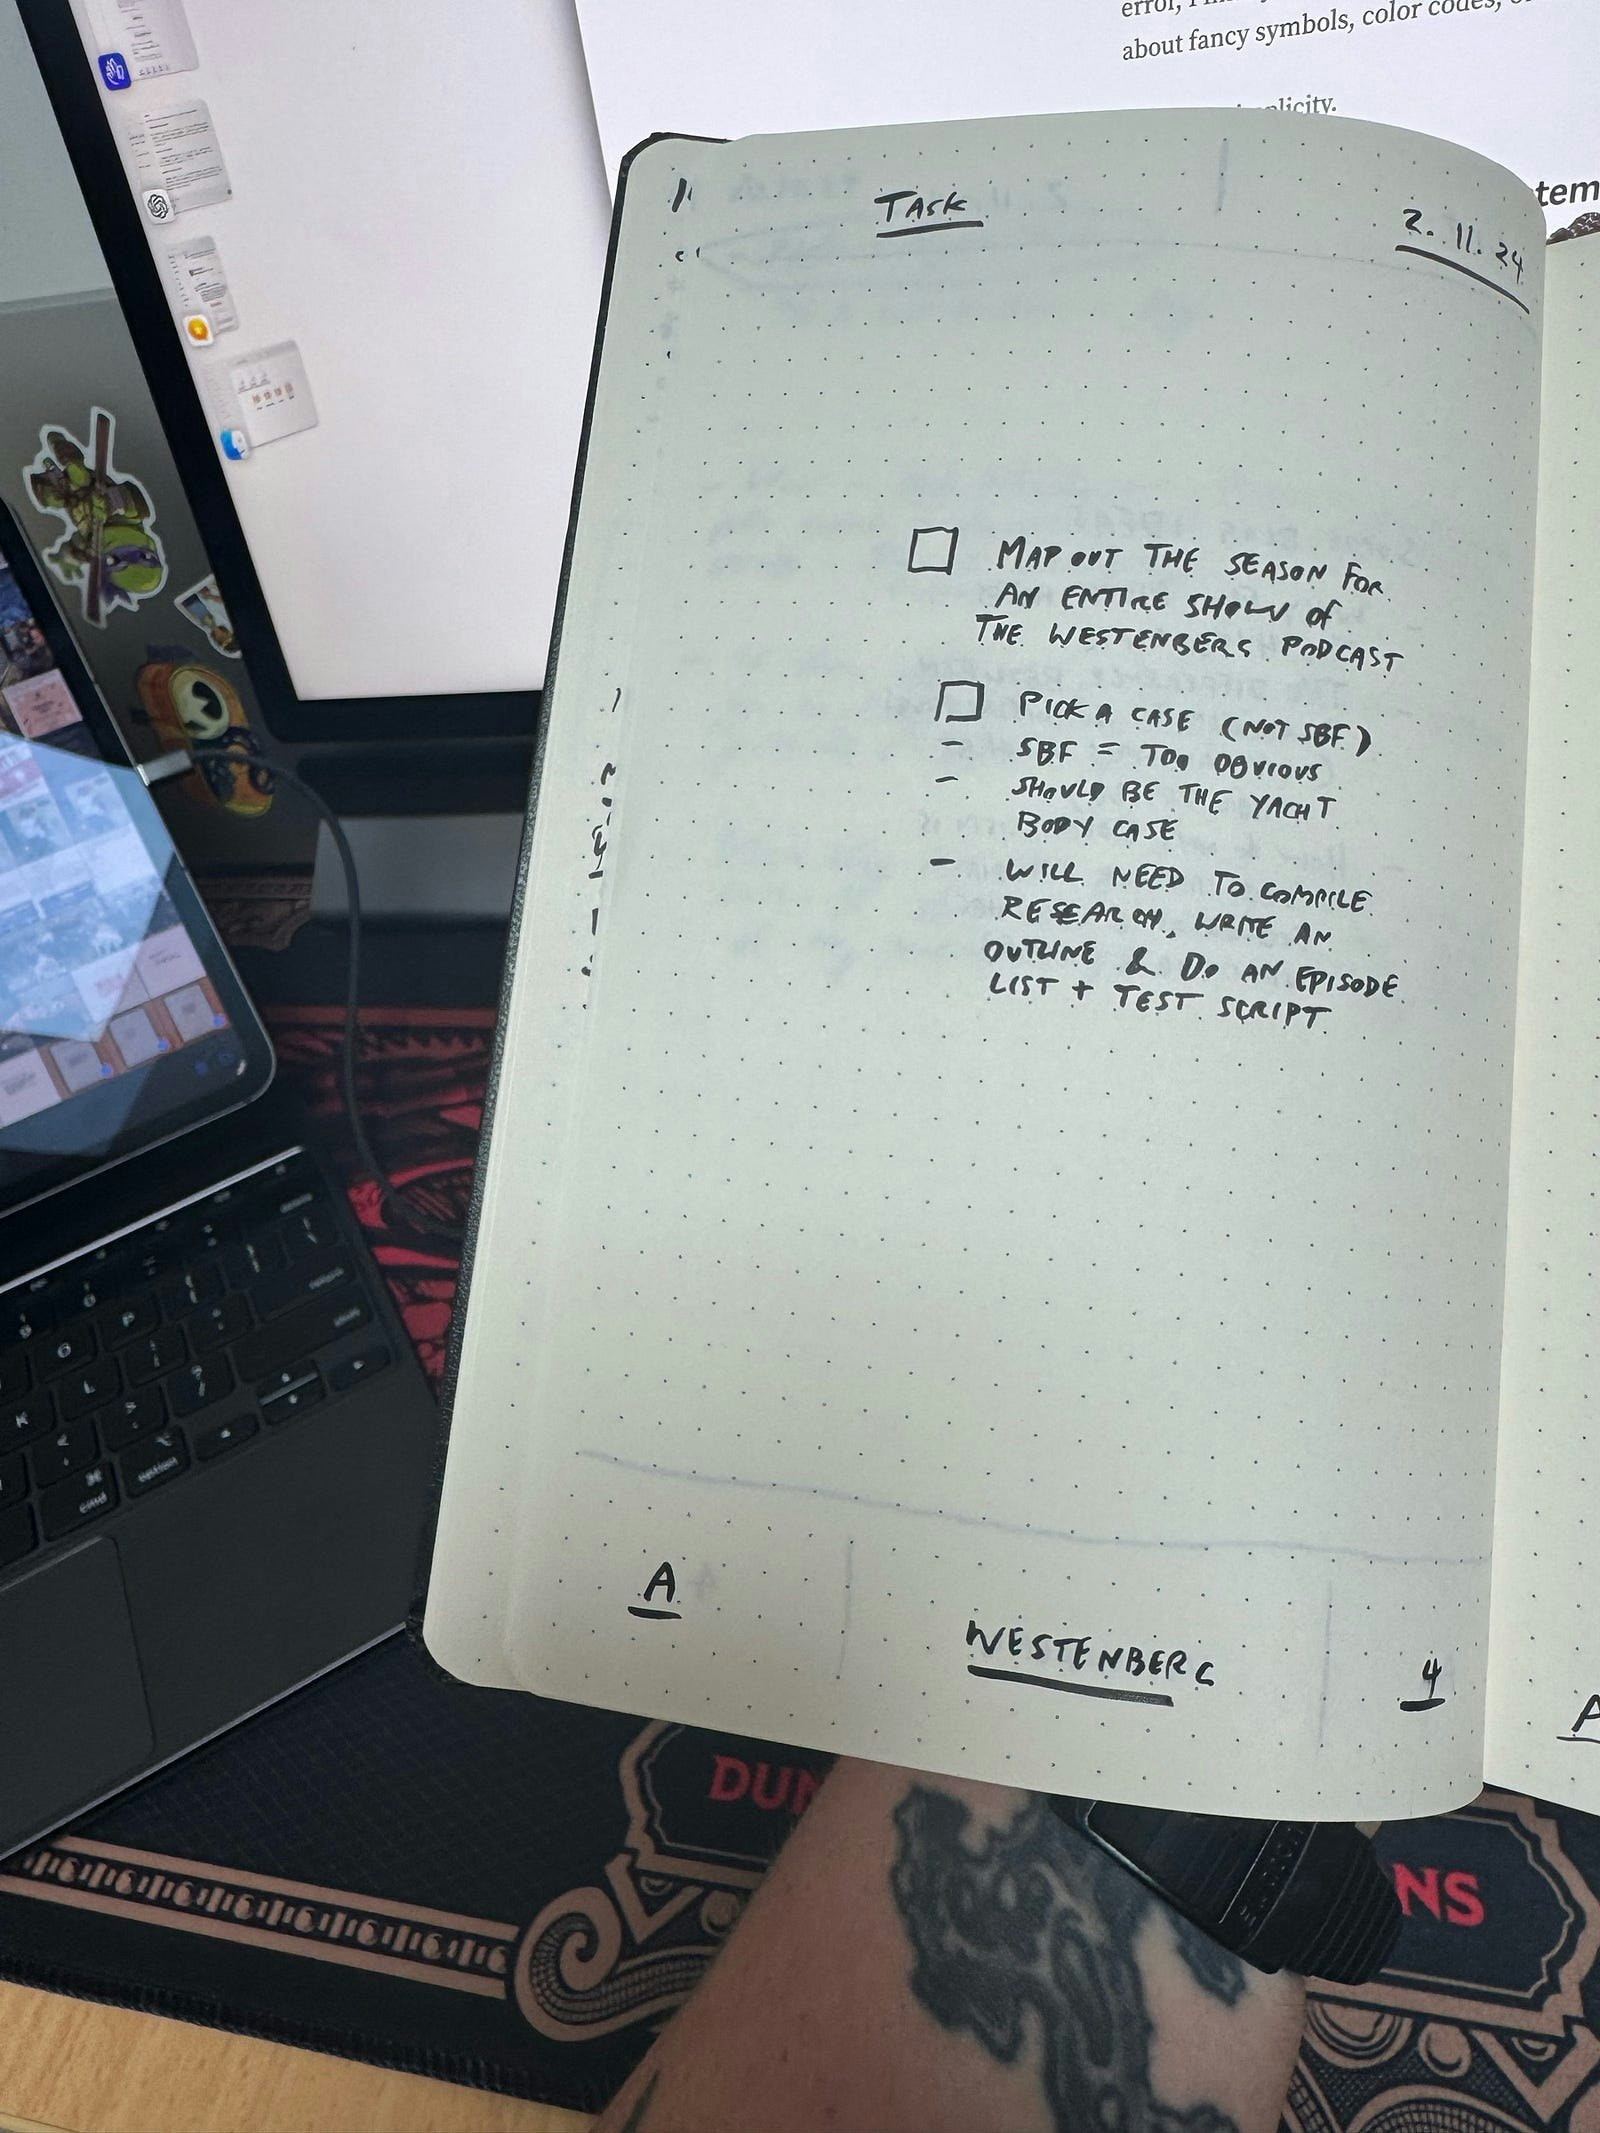 about fancy symbols, color codes,
Task
2.11.24
MAP OUT THE SEASON FOR
AN ENTIRE SHOW OF
THE WESTENBERG PODCAST
PICK A CASE (NOT SBF)
- SBF = TOO OBVIOUS
- SHOULD BE THE YACHT
BODY CASE
- WILL NEED TO COMPILE
RESEARCH, WRITE AN
OUTLINE & DO AN EPISODE
LIST + TEST SCRIPT
A
WESTENBERG
4
A